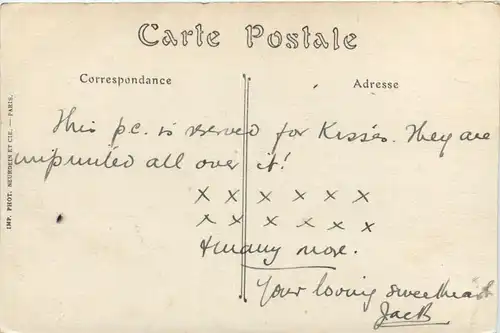 Carte Postale
Correspondance
Adresse
This p.c. is reserved for Kisses. They are
imprinted all over it!
x x x x x x
x x x x x x
& many more.
Your loving sweetheart
Jack
IMP. PHOT. NEURDEIN ET CIE. — PARIS.